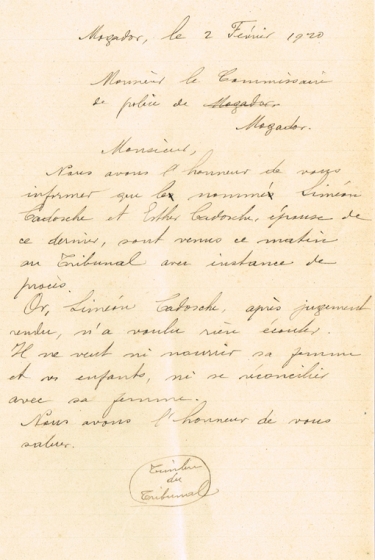 Mogador, le 2 Février 1920
Monsieur le Commissaire
de police de Mogador
Mogador.
Monsieur,
Nous avons l'honneur de vous
informer que les nommés Siméon
Cadosche et Esther Cadosche, épouse de
ce dernier, sont venus ce matin
au Tribunal avec instance de
procès.
Or, Siméon Cadosche, après jugement
rendu, n'a voulu rien écouter.
Il ne veut ni nourrir sa femme
et ses enfants, ni se réconcilier
avec sa femme.
Nous avons l'honneur de vous
saluer.
Timbre
du
Tribunal